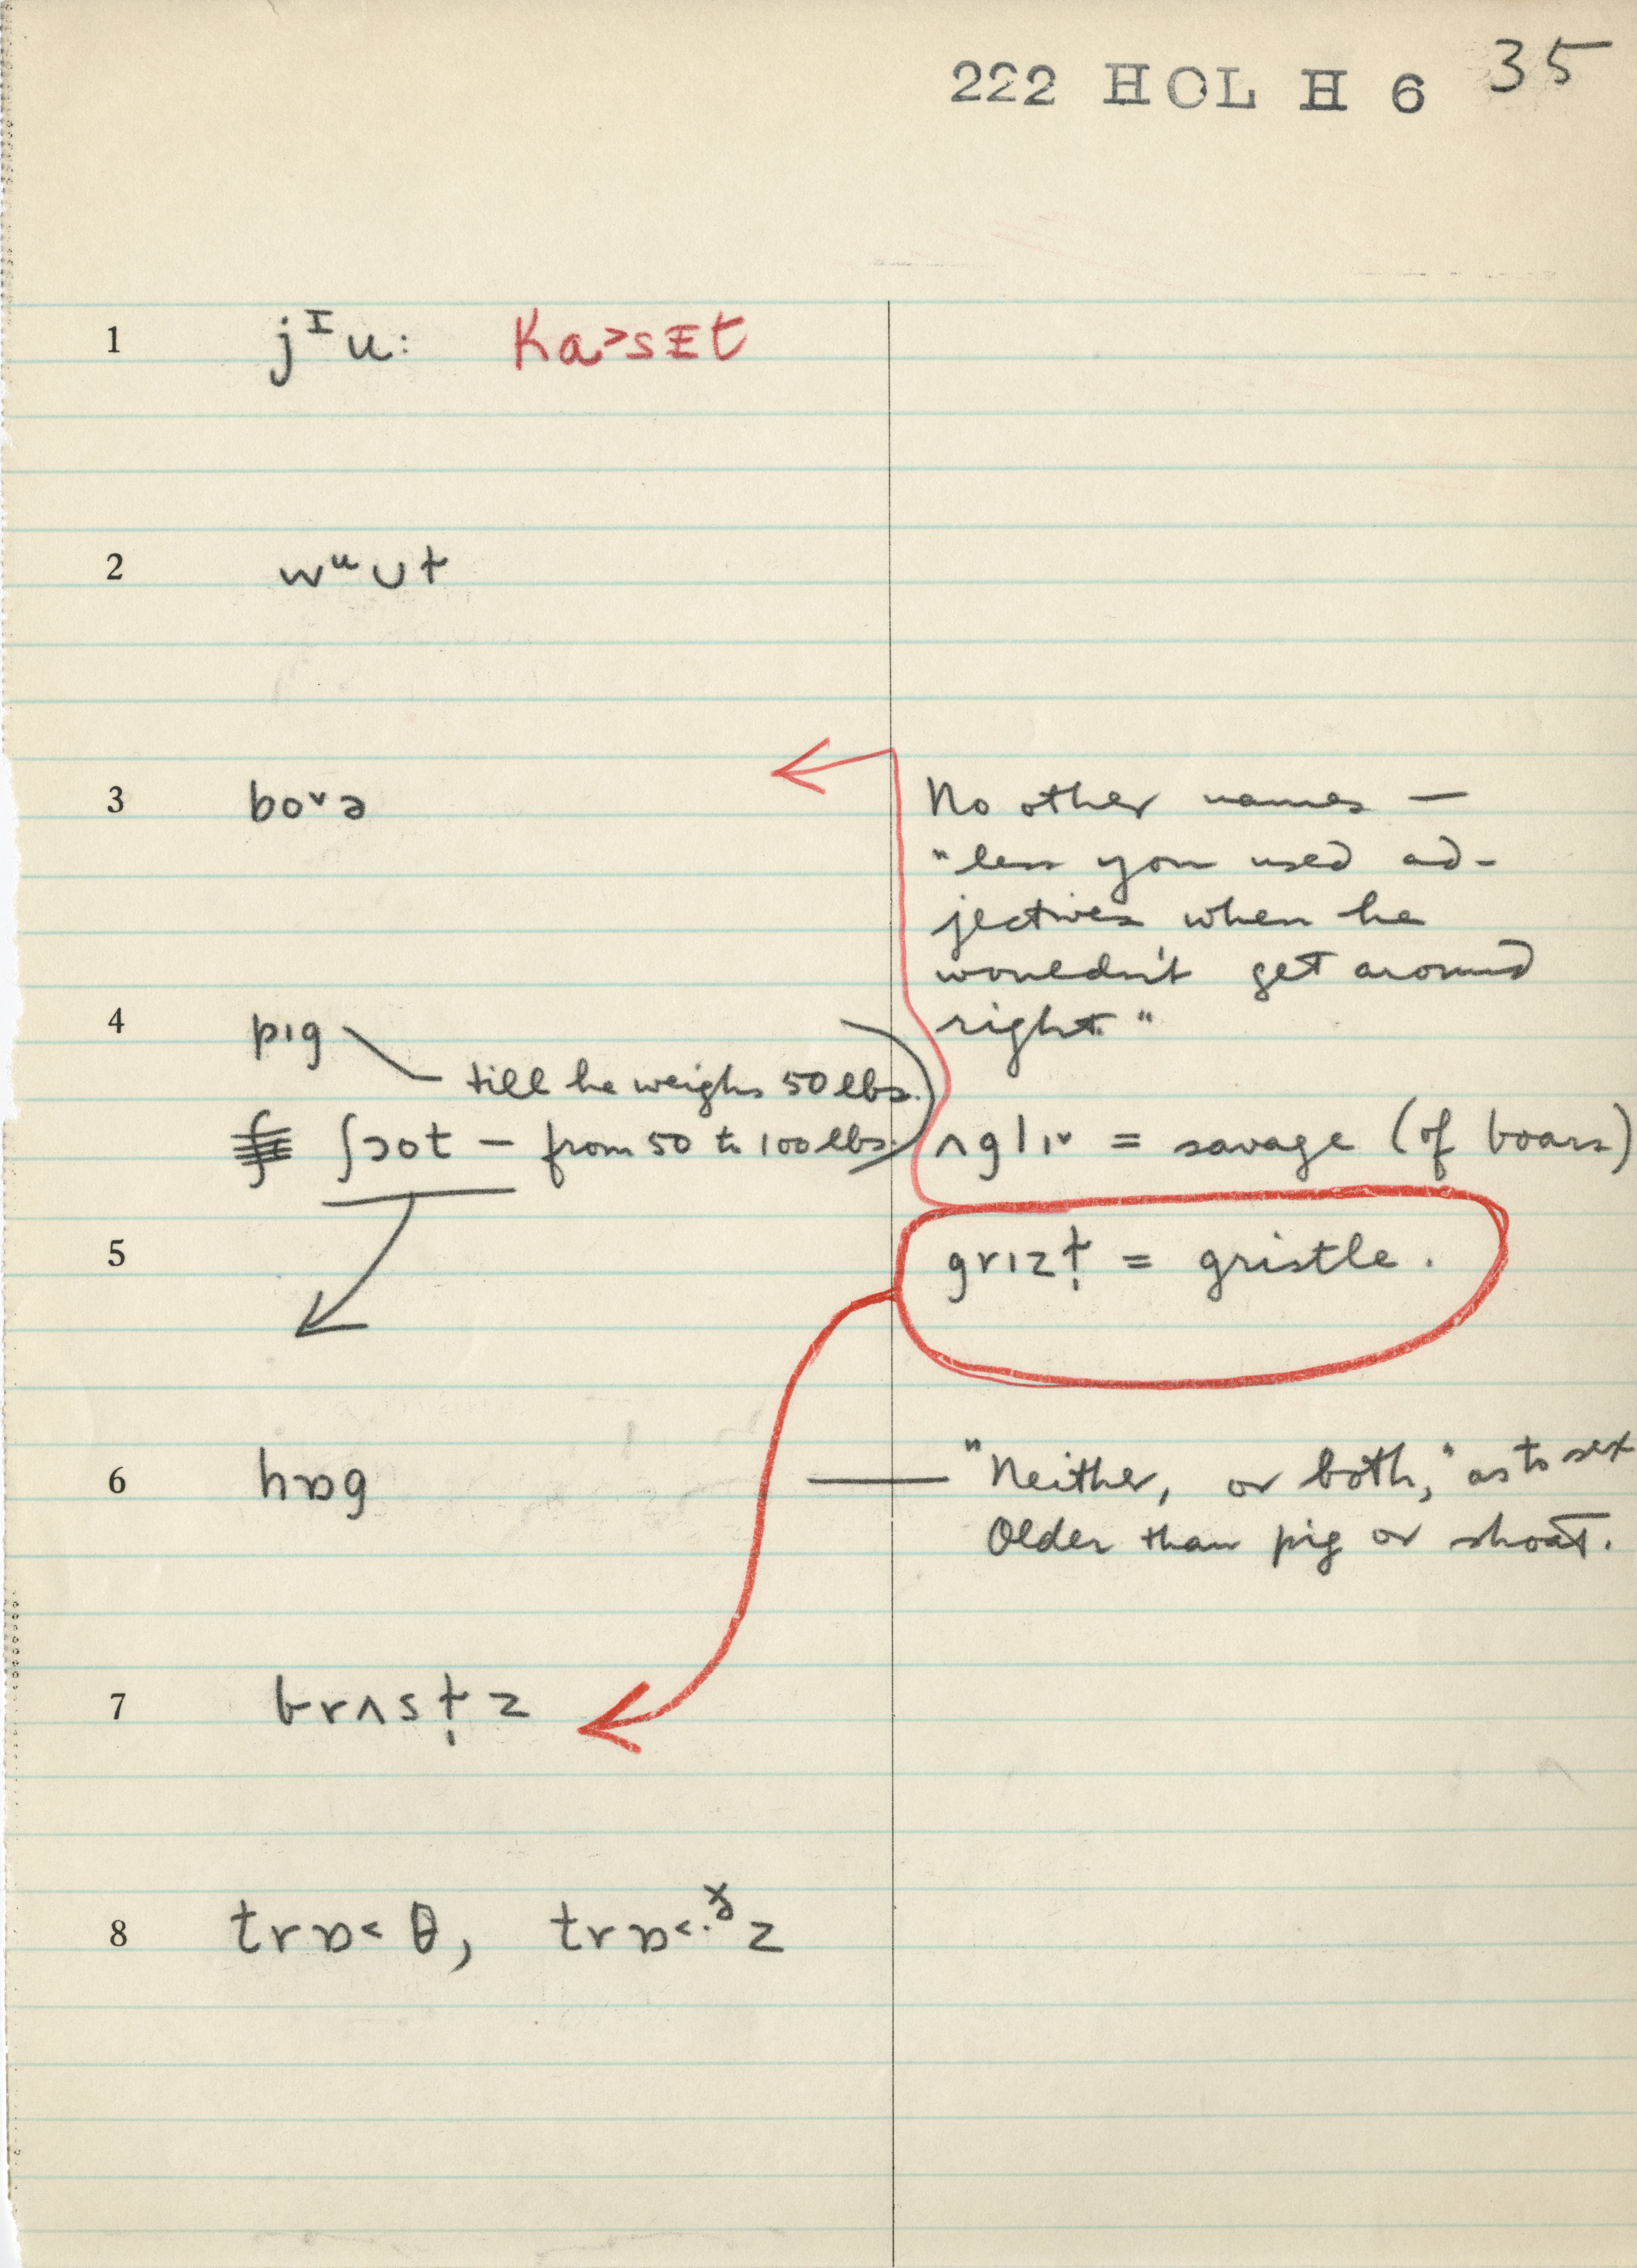 222 HOL H 6 35
1 jᴵu: Ka˃sɪt
2 wᵘʊt
3 bo˅ə No other names —
"less you used ad-
jectives when he
wouldn't get around
4 pɪg right."
till he weighs 50 lbs.
ʃɔot — from 50 to 100 lbs. ʌglɪ˅ = savage (of boars)
5 grɪzɫ̩ = gristle.
6 hɒg — "Neither, or both," as to sex
Older than pig or shoat.
7 brʌsɫ̩z
8 trɒ˂θ, trɒ˂·ᵟz